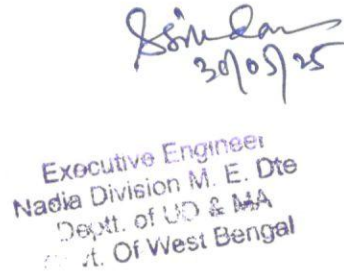 30/05/25
Executive Engineer
Nadia Division M. E. Dte
Deptt. of UD & MA
Of West Bengal